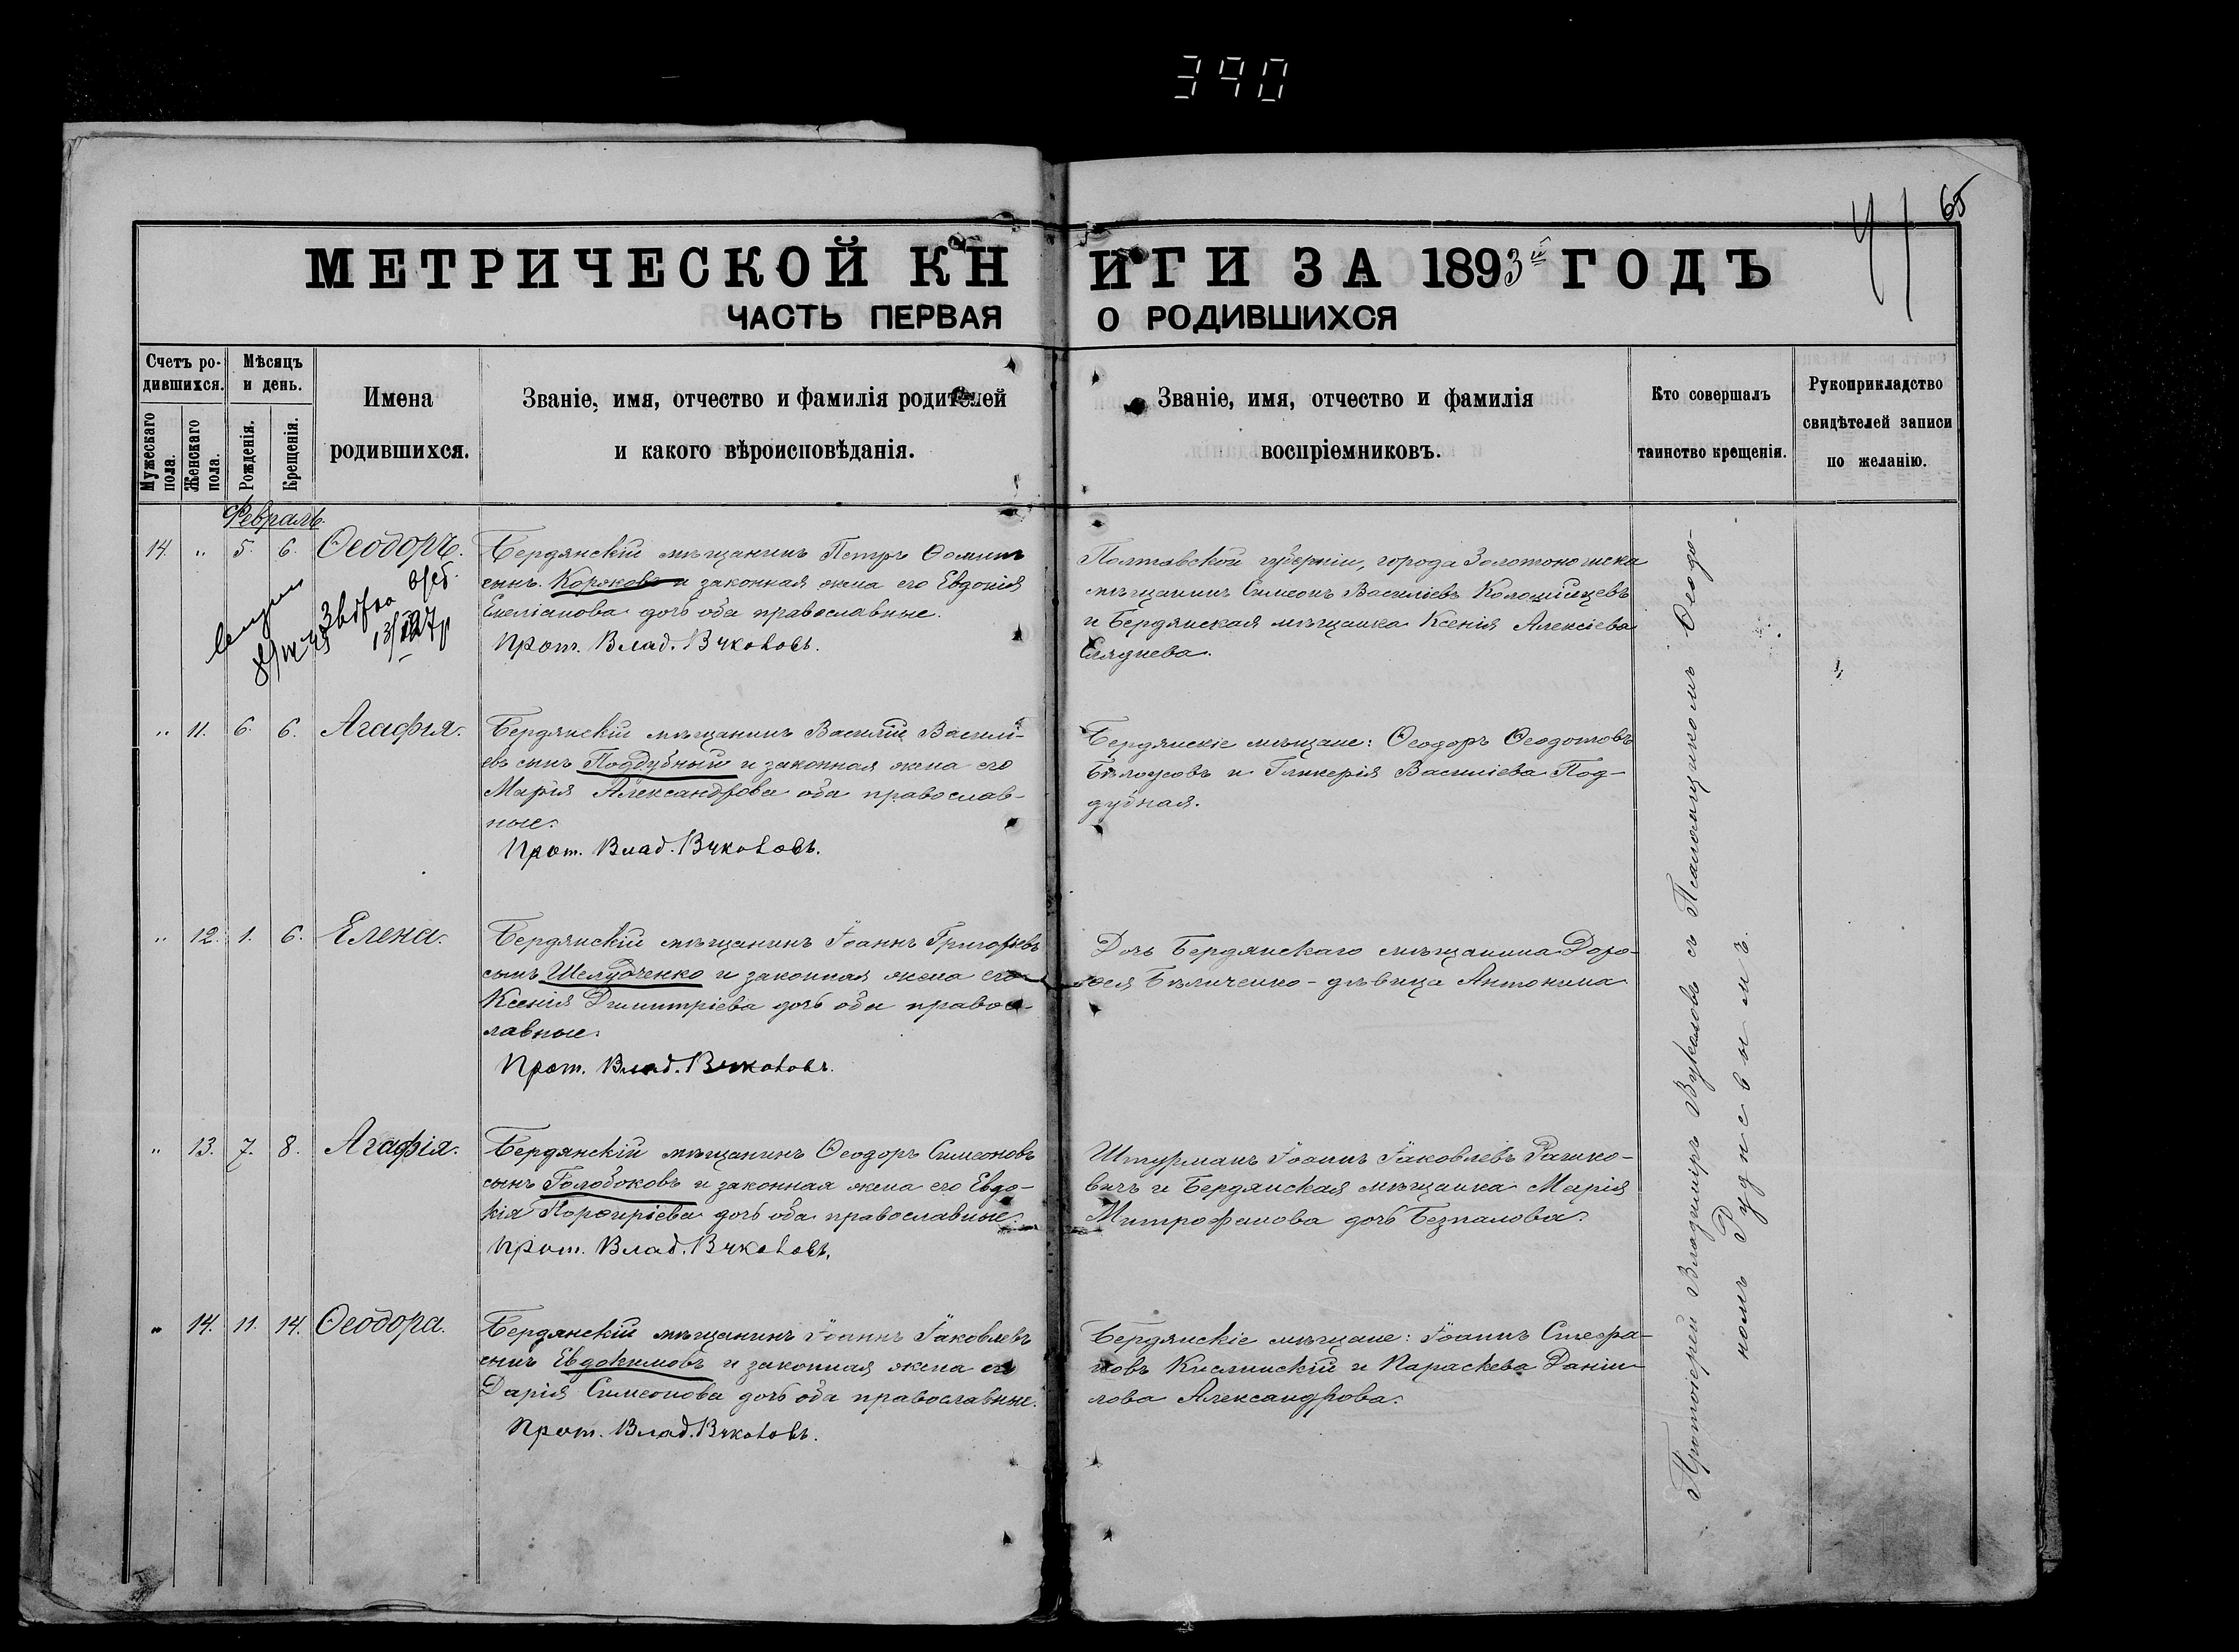 390
65
41
МЕТРИЧЕСКОЙ КНИГИ ЗА 1893й ГОДЪ
ЧАСТЬ ПЕРВАЯ О РОДИВШИХСЯ
Счетъ ро-
дившихся.
Мужескаго пола.
Женскаго пола.
Мѣсяцъ
и день.
Рожденія.
Крещенія.
Имена
родившихся.
Званіе, имя, отчество и фамилія родителей
и какого вѣроисповѣданія.
Званіе, имя, отчество и фамилія
воспріемниковъ.
Кто совершалъ
таинство крещенія.
Рукоприкладство
свидѣтелей записи
по желанію.
Февраль.
14. " 5. 6. Ѳеодоръ.
Бердянскій мѣщанинъ Петръ Ѳоминъ
сынъ Коряковъ и законная жена его Евдокія
Емеліанова дочь оба православные.
Прот. Влад. Вукаловъ.
Полтавской губерніи, города Золотоношска
мѣщанинъ Симеонъ Василіевъ
и Бердянская мѣщанка Ксенія Алексіева
" 11. 6. 6. Агафія.
Бердянскій мѣщанинъ Василій Василі-
евъ сынъ Поддубный и законная жена его
Марія Александрова оба православ-
ные.
Прот. Влад. Вукаловъ.
Бердянскіе мѣщане: Ѳеодоръ Ѳеодотовъ
Бѣлоусовъ и Гликерія Василіева Под-
дубная.
" 12. 1. 6. Елена.
Бердянскій мѣщанинъ Іоаннъ Григорьевъ
сынъ Шелудченко и законная жена его
Ксенія Димитріева дочь оба правос-
лавные.
Прот. Влад. Вукаловъ.
Дочь Бердянскаго мѣщанина Доро-
ѳея Бѣличенко - дѣвица Антонина
" 13. 7. 8. Агафія.
Бердянскій мѣщанинъ Ѳеодоръ Симеоновъ
сынъ Голобоковъ и законная жена его Евдо-
кія Порфиріева дочь оба православные.
Прот. Влад. Вукаловъ.
Штурманъ Іоаннъ Іаковлевъ
и Бердянская мѣщанка Марія
Митрофанова дочь Безпалова.
" 14. 11. 14. Ѳеодора.
Бердянскій мѣщанинъ Іоаннъ Іаковлевъ
сынъ Евдокимовъ и законная жена его
Дарія Симеонова дочь оба православные.
Прот. Влад. Вукаловъ.
Бердянскіе мѣщане: Іоаннъ Стефа-
новъ Кислинскій и Параскева Даніи-
лова Александрова.
Протоіерей Владиміръ Вукаловъ съ Псаломщикомъ Ѳеодо-
номъ Рудневымъ.